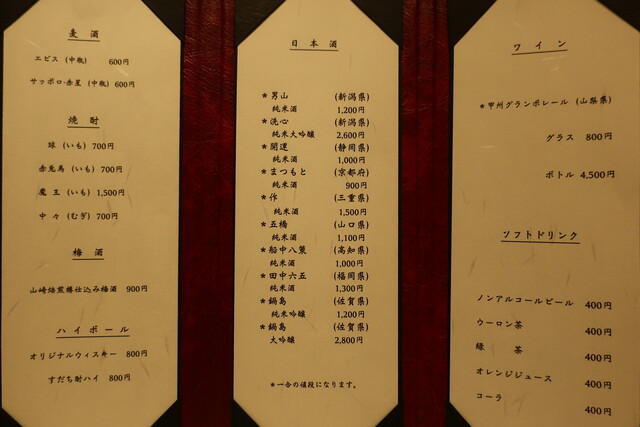 麦酒
エビス (中瓶) 600円
サッポロ・赤星 (中瓶) 600円
焼酎
球 (いも) 700円
赤兎馬 (いも) 700円
魔王 (いも) 1,500円
中々 (むぎ) 700円
梅酒
山崎焙煎樽仕込み梅酒 900円
ハイボール
オリジナルウィスキー 800円
すだち酎ハイ 800円
日本酒
*男山 (新潟県)
純米酒 1,200円
*洗心 (新潟県)
純米大吟醸 2,600円
*開運 (静岡県)
純米酒 1,000円
*まつもと (京都府)
純米酒 900円
*作 (三重県)
純米酒 1,500円
*五橋 (山口県)
純米酒 1,100円
*船中八策 (高知県)
純米酒 1,000円
*田中六五 (福岡県)
純米酒 1,300円
*鍋島 (佐賀県)
純米吟醸 1,200円
*鍋島 (佐賀県)
大吟醸 2,800円
*一合の値段になります。
ワイン
*甲州グランポレール (山梨県)
グラス 800円
ボトル 4,500円
ソフトドリンク
ノンアルコールビール 400円
ウーロン茶 400円
緑茶 400円
オレンジジュース 400円
コーラ 400円